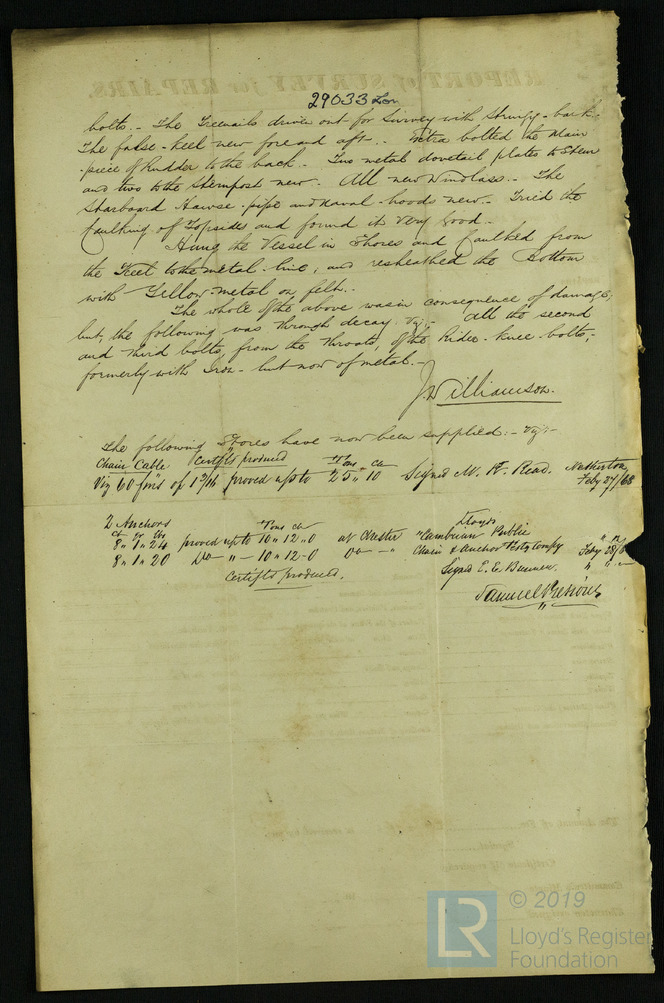 REPORT of SURVEY for REPAIRS.
29033 Lon
bolts. - The Treenails driven out for Survey with
The false-keel new fore and aft. - Extra bolted the Main
-piece of Rudder to the back. - Two metal dovetail plates to Stem
and two to the Sternpost new. - All new Windlass. - The
Starboard Hawse-pipe and naval-hoods new. - Tried the
Caulking of Topsides and found it very Good. -
Hung the Vessel in Shores and Caulked from
the Keel to the metal-line, and resheathed the Bottom
with Yellow-metal on felt. -
The whole of the above was in consequence of damage;
but, the following was through decay. Viz;- All the second
and third bolts, from the throats, of the Rider-knee bolts,-
formerly with Iron - but now of metal. -
J. Williamson.
The following Stores have now been supplied: - Viz:-
Chain Cable Certifts produced Tons Ct
Viz 60 fms of proved up to 25 " 10 Signed M. Read. Netherton
Feby 27/68
2 Anchors Tons Ct Lloyds
Ct qr lbs
8 " 1 " 24 proved up to 10 " 12 " 0 at Chester "Cambrian Public
8 " 1 " 20 Do - " - 10 " 12 - 0 Do - " Chain & Anchor Testg Compy Feby 28/68
Certifts produced. Signd E. E.
Samuel
© 2019
Lloyd's Register
Foundation
LR